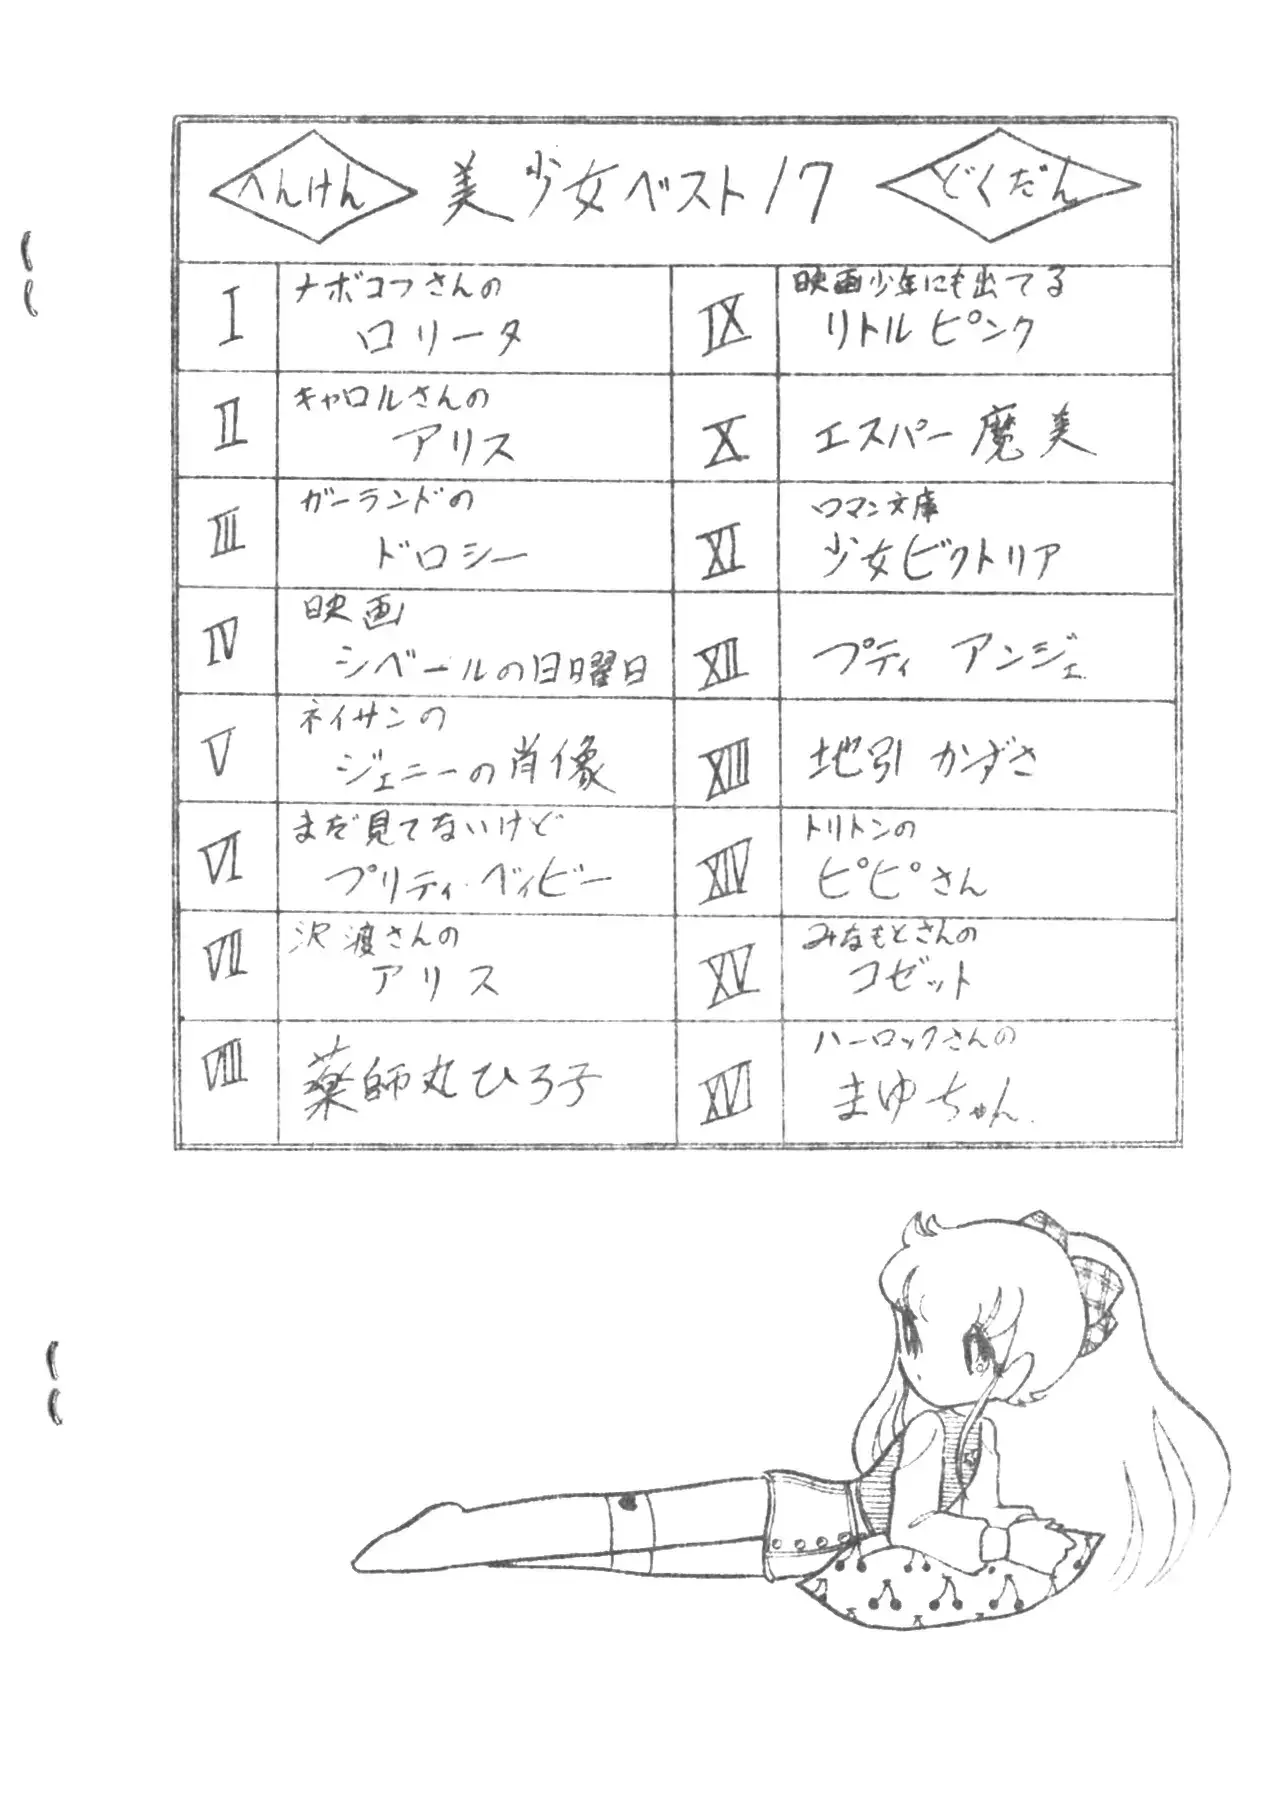 へんけん 美少女ベスト17 どくだん
I ナボコフさんの
ロリータ
II キャロルさんの
アリス
III ガーランドの
ドロシー
IV 映画
シベールの日曜日
V ネイサンの
ジェニーの肖像
VI まだ見てないけど
プリティ・ベイビー
VII 沢渡さんの
アリス
VIII 薬師丸ひろ子
IX 映画少年にも出てる
リトルピンク
X エスパー魔美
XI ロマン文庫
少女ビクトリア
XII プティ アンジェ
XIII 地引かずさ
XIV トリトンの
ピピさん
XV みなもとさんの
コゼット
XVI ハーロックさんの
まゆちゃん.